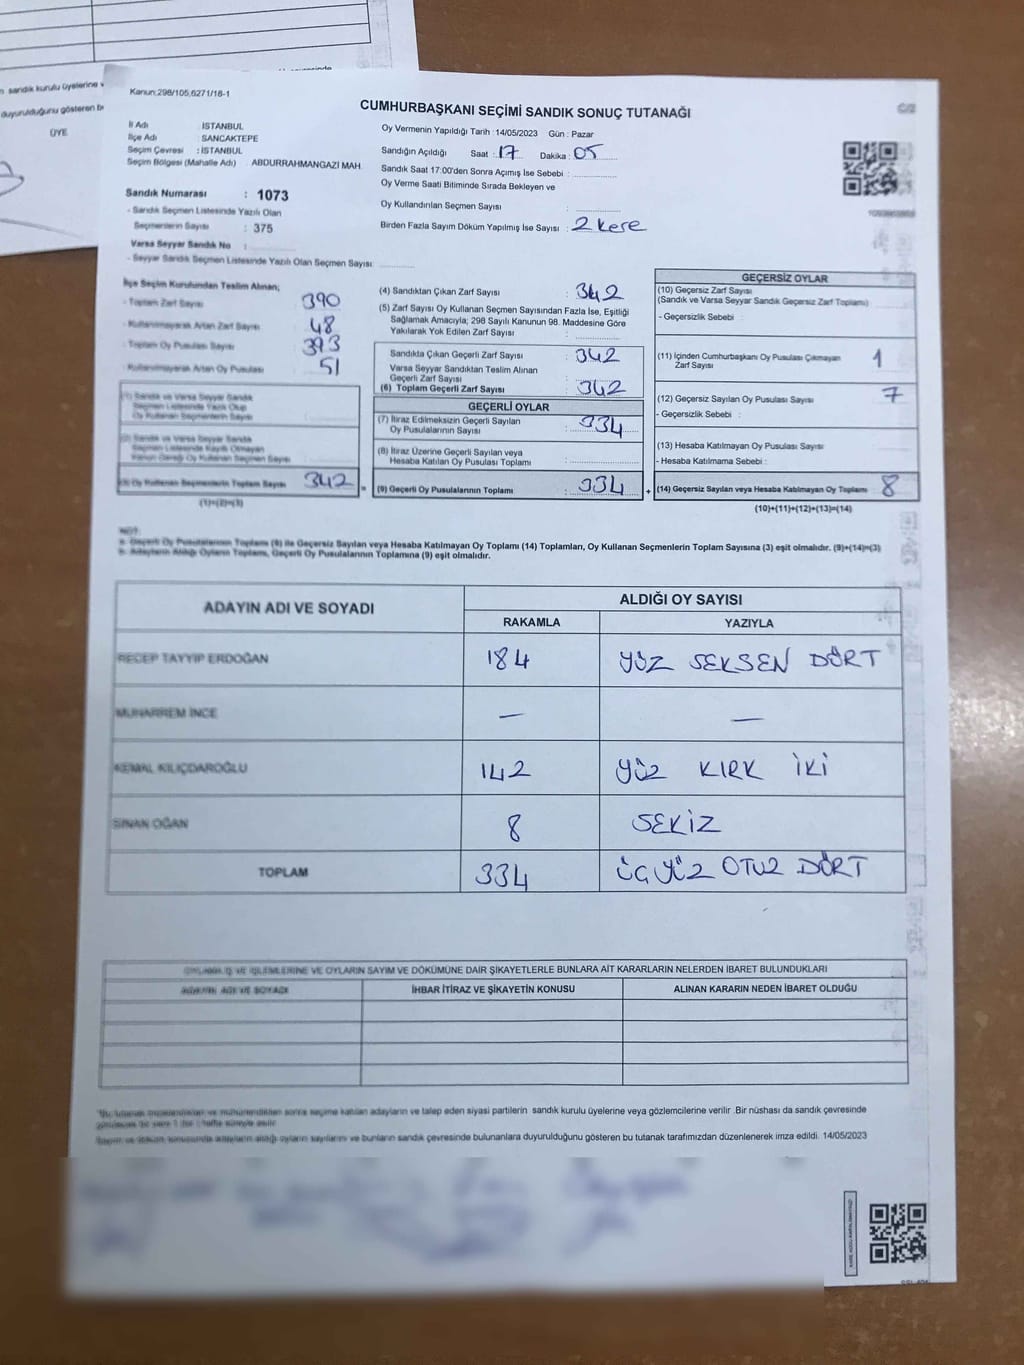 sandık kurulu üyelerine
duyurulduğunu gösteren
ÜYE
Kanun:298/105,6271/18-1
CUMHURBAŞKANI SEÇİMİ SANDIK SONUÇ TUTANAĞI
C/2
İl Adı İSTANBUL
İlçe Adı SANCAKTEPE
Seçim Çevresi : İSTANBUL
Seçim Bölgesi (Mahalle Adı) ABDURRAHMANGAZİ MAH.
Sandık Numarası : 1073
- Sandık Seçmen Listesinde Yazılı Olan
Seçmenlerin Sayısı : 375
Varsa Seyyar Sandık No :
- Seyyar Sandık Seçmen Listesinde Yazılı Olan Seçmen Sayısı:
Oy Vermenin Yapıldığı Tarih : 14/05/2023 Gün : Pazar
Sandığın Açıldığı Saat : 17 Dakika : 05
Sandık Saat 17:00'den Sonra Açımış İse Sebebi :
Oy Verme Saati Bitiminde Sırada Bekleyen ve
Oy Kullandırılan Seçmen Sayısı :
Birden Fazla Sayım Döküm Yapılmış İse Sayısı : 2 kere
İlçe Seçim Kurulundan Teslim Alınan;
- Toplam Zarf Sayısı 390
- Kullanılmayarak Artan Zarf Sayısı 48
- Toplam Oy Pusulası Sayısı 393
- Kullanılmayarak Artan Oy Pusulası 51
(1) Sandık ve Varsa Seyyar Sandık
Seçmen Listesinde Yazılı Olup
Oy Kullanan Seçmenlerin Sayısı
(2) Sandık ve Varsa Seyyar Sandık
Seçmen Listesinde Kayıtlı Olmayan
Kanun Gereği Oy Kullanan Seçmenlerin Sayısı
(3) Oy Kullanan Seçmenlerin Toplam Sayısı 342
(1)+(2)=(3)
(4) Sandıktan Çıkan Zarf Sayısı : 342
(5) Zarf Sayısı Oy Kullanan Seçmen Sayısından Fazla İse, Eşitliği
Sağlamak Amacıyla; 298 Sayılı Kanunun 98. Maddesine Göre
Yakılarak Yok Edilen Zarf Sayısı :
Sandıkta Çıkan Geçerli Zarf Sayısı : 342
Varsa Seyyar Sandıktan Teslim Alınan
Geçerli Zarf Sayısı
(6) Toplam Geçerli Zarf Sayısı : 342
GEÇERLİ OYLAR
(7) İtiraz Edilmeksizin Geçerli Sayılan
Oy Pusulalarının Sayısı : 334
(8) İtiraz Üzerine Geçerli Sayılan veya
Hesaba Katılan Oy Pusulası Toplamı :
= (9) Geçerli Oy Pusulalarının Toplamı : 334
GEÇERSİZ OYLAR
(10) Geçersiz Zarf Sayısı
(Sandık ve Varsa Seyyar Sandık Geçersiz Zarf Toplamı)
- Geçersizlik Sebebi :
(11) İçinden Cumhurbaşkanı Oy Pusulası Çıkmayan
Zarf Sayısı 1
(12) Geçersiz Sayılan Oy Pusulası Sayısı 7
- Geçersizlik Sebebi :
(13) Hesaba Katılmayan Oy Pusulası Sayısı
- Hesaba Katılmama Sebebi :
+ (14) Geçersiz Sayılan veya Hesaba Katılmayan Oy Toplamı 8
(10)+(11)+(12)+(13)=(14)
NOT:
Geçerli Oy Pusulalarının Toplamı (9) ile Geçersiz Sayılan veya Hesaba Katılmayan Oy Toplamı (14) Toplamları, Oy Kullanan Seçmenlerin Toplam Sayısına (3) eşit olmalıdır. (9)+(14)=(3)
Adayların Aldığı Oyların Toplamı, Geçerli Oy Pusulalarının Toplamına (9) eşit olmalıdır.
ADAYIN ADI VE SOYADI ALDIĞI OY SAYISI
RAKAMLA YAZIYLA
RECEP TAYYİP ERDOĞAN 184 YÜZ SEKSEN DÖRT
MUHARREM İNCE — —
KEMAL KILIÇDAROĞLU 142 YÜZ KIRK İKİ
SİNAN OĞAN 8 SEKİZ
TOPLAM 334 ÜÇYÜZ OTUZ DÖRT
VE İŞLEMLERİNE VE OYLARIN SAYIM VE DÖKÜMÜNE DAİR ŞİKAYETLERLE BUNLARA AİT KARARLARIN NELERDEN İBARET BULUNDUKLARI
ADI VE SOYADI İHBAR İTİRAZ VE ŞİKAYETİN KONUSU ALINAN KARARIN NEDEN İBARET OLDUĞU
ve mühürlendikten sonra seçime katılan adayların ve talep eden siyasi partilerin sandık kurulu üyelerine veya gözlemcilerine verilir .Bir nüshası da sandık çevresinde
adayların aldığı oyların sayılarını ve bunların sandık çevresinde bulunanlara duyurulduğunu gösteren bu tutanak tarafımızdan düzenlenerek imza edildi. 14/05/2023